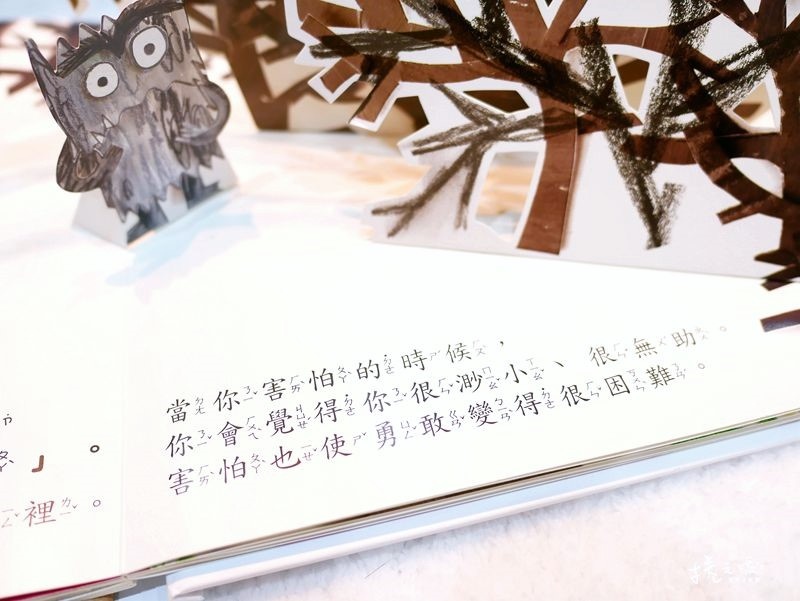 當你害怕的時候，
你會覺得你很渺小、很無助。
害怕也使勇敢變得很困難。
」。
裡。